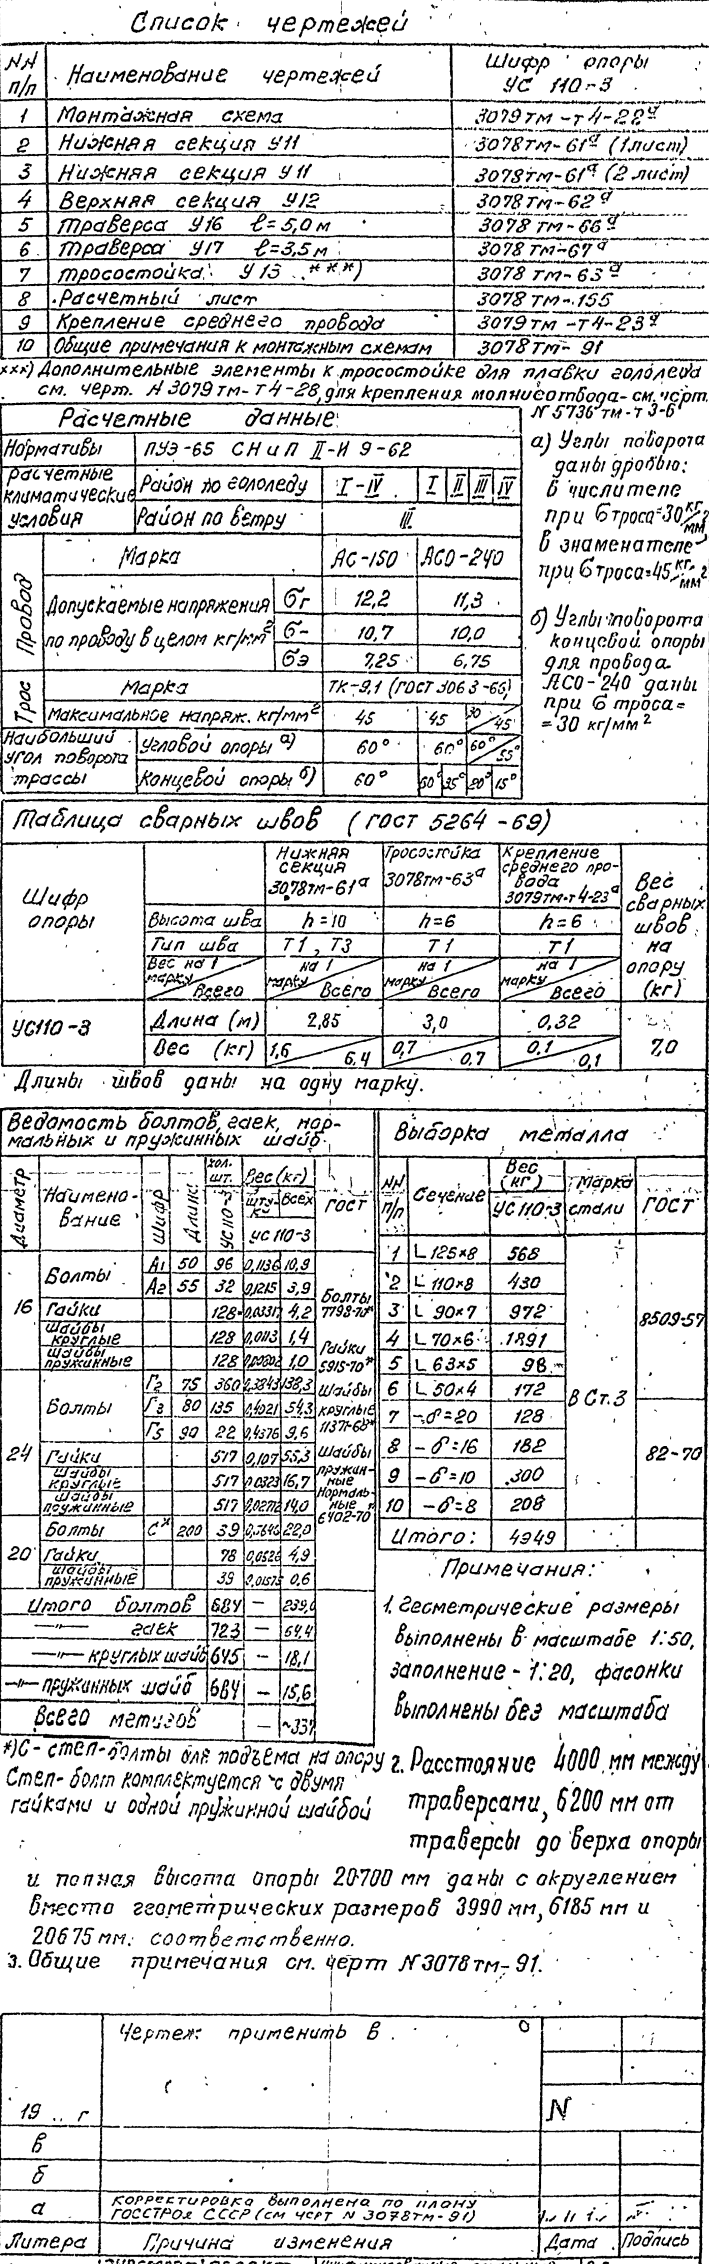 Список чертежей
NN п/п | Наименование чертежей | Шифр опоры УС 110-3
1 | Монтажная схема | 3079тм-т4-22а
2 | Нижняя секция У11 | 3078тм-61а (1 лист)
3 | Нижняя секция У11 | 3078тм-61а (2 лист)
4 | Верхняя секция У12 | 3078тм-62а
5 | Траверса У16 ℓ=5,0м | 3078тм-66а
6 | Траверса У17 ℓ=3,5м | 3078тм-67а
7 | Тросостойка У13 ***) | 3078тм-63а
8 | Расчетный лист | 3078тм-155
9 | Крепление среднего провода | 3079тм-т4-23а
10 | Общие примечания к монтажным схемам | 3078тм-91
***) Дополнительные элементы к тросостойке для плавки гололеда
см. черт. N 3079тм-т4-28, для крепления молниеотвода - см. черт.
N 5736тм-т3-6
Расчетные данные
Нормативы | ПУЭ-65 СНиП II-И 9-62
Расчетные климатические условия | Район по гололеду | I-IV | I | II | III | IV
Район по ветру | III
Провод | Марка | АС-150 | АСО-240
Допускаемые напряжения по проводу в целом кг/мм² | бг | 12,2 | 11,3
б- | 10,7 | 10,0
бэ | 7,25 | 6,75
Трос | Марка | ТК-9,1 (ГОСТ 3063-66)
Максимальное напряж. кг/мм² | 45 | 45 | 30/45
Наибольший угол поворота трассы | Угловой опоры а) | 60° | 60° | 60°/55°
Концевой опоры б) | 60° | 60° | 35° | 20° | 15°
а) Углы поворота
даны дробью:
в числителе
при б троса=30 кг/мм²
в знаменателе
при б троса=45 кг/мм²
б) Углы поворота
концевой опоры
для провода
АСО-240 даны
при б троса=
=30 кг/мм²
Таблица сварных швов (ГОСТ 5264-69)
Шифр опоры | Нижняя секция 3078тм-61а | Тросостойка 3078тм-63а | Крепление среднего провода 3079тм-т4-23а | Вес сварных швов на опору (кг)
Высота шва | h=10 | h=6 | h=6
Тип шва | Т1, Т3 | Т1 | Т1
Вес на 1 марку / Всего | на 1 марку / Всего | на 1 марку / Всего | на 1 марку / Всего
УС110-3 | Длина (м) | 2,85 | 3,0 | 0,32
Вес (кг) | 1,6 / 6,4 | 0,7 / 0,7 | 0,1 / 0,1 | 7,0
Длины швов даны на одну марку.
Ведомость болтов, гаек, нормальных и пружинных шайб
Диаметр | Наименование | Шифр | Длина | Кол. шт. УС110-3 | Вес (кг) штуки | Всех | УС 110-3 | ГОСТ
16 | Болты | А1 | 50 | 96 | 0,1136 | 10,9
А2 | 55 | 32 | 0,1215 | 3,9
Гайки | 128 | 0,0331 | 4,2
Шайбы круглые | 128 | 0,0113 | 1,4
Шайбы пружинные | 128 | 1,0
24 | Болты | Г2 | 75 | 360 | 0,3843 | 138,3
Г3 | 80 | 135 | 0,4021 | 54,3
Г5 | 90 | 22 | 0,4376 | 9,6
Гайки | 517 | 0,107 | 55,3
Шайбы круглые | 517 | 0,0323 | 16,7
Шайбы пружинные | 517 | 14,0
20 | Болты | С* | 200 | 39 | 22,0
Гайки | 78 | 4,9
Шайбы пружинные | 39 | 0,01575 | 0,6
Болты 7798-70*
Гайки 5915-70*
Шайбы круглые 11371-68*
Шайбы пружинные нормальные 6402-70
Итого болтов | 684 | — | 239,0
—"— гаек | 723 | — | 64,4
—"— круглых шайб | 645 | — | 18,1
—"— пружинных шайб | 684 | — | 15,6
Всего метизов | — | ~337
*) С - степ-болты для подъема на опору
Степ-болт комплектуется с двумя
гайками и одной пружинной шайбой
Выборка металла
NN п/п | Сечение | Вес (кг) УС110-3 | Марка стали | ГОСТ
1 | L 125×8 | 568
2 | L 110×8 | 430
3 | L 90×7 | 972
4 | L 70×6 | 1891
5 | L 63×5 | 98
6 | L 50×4 | 172
7 | -б=20 | 128
8 | -б=16 | 182
9 | -б=10 | 300
10 | -б=8 | 208
В Ст.3
8509-57
82-70
Итого: | 4949
Примечания:
1. Геометрические размеры
выполнены в масштабе 1:50,
заполнение - 1:20, фасонки
выполнены без масштаба
2. Расстояние 4000 мм между
траверсами, 6200 мм от
траверсы до верха опоры
и полная высота опоры 20700 мм даны с округлением
вместо геометрических размеров 3990 мм, 6185 мм и
20675 мм. соответственно.
3. Общие примечания см. черт N 3078тм-91.
Чертеж применить в
19 .. г
N
в
б
а | Корректировка выполнена по плану
Госстроя СССР (см черт N 3078тм-91)
Литера | Причина изменения | Дата | Подпись